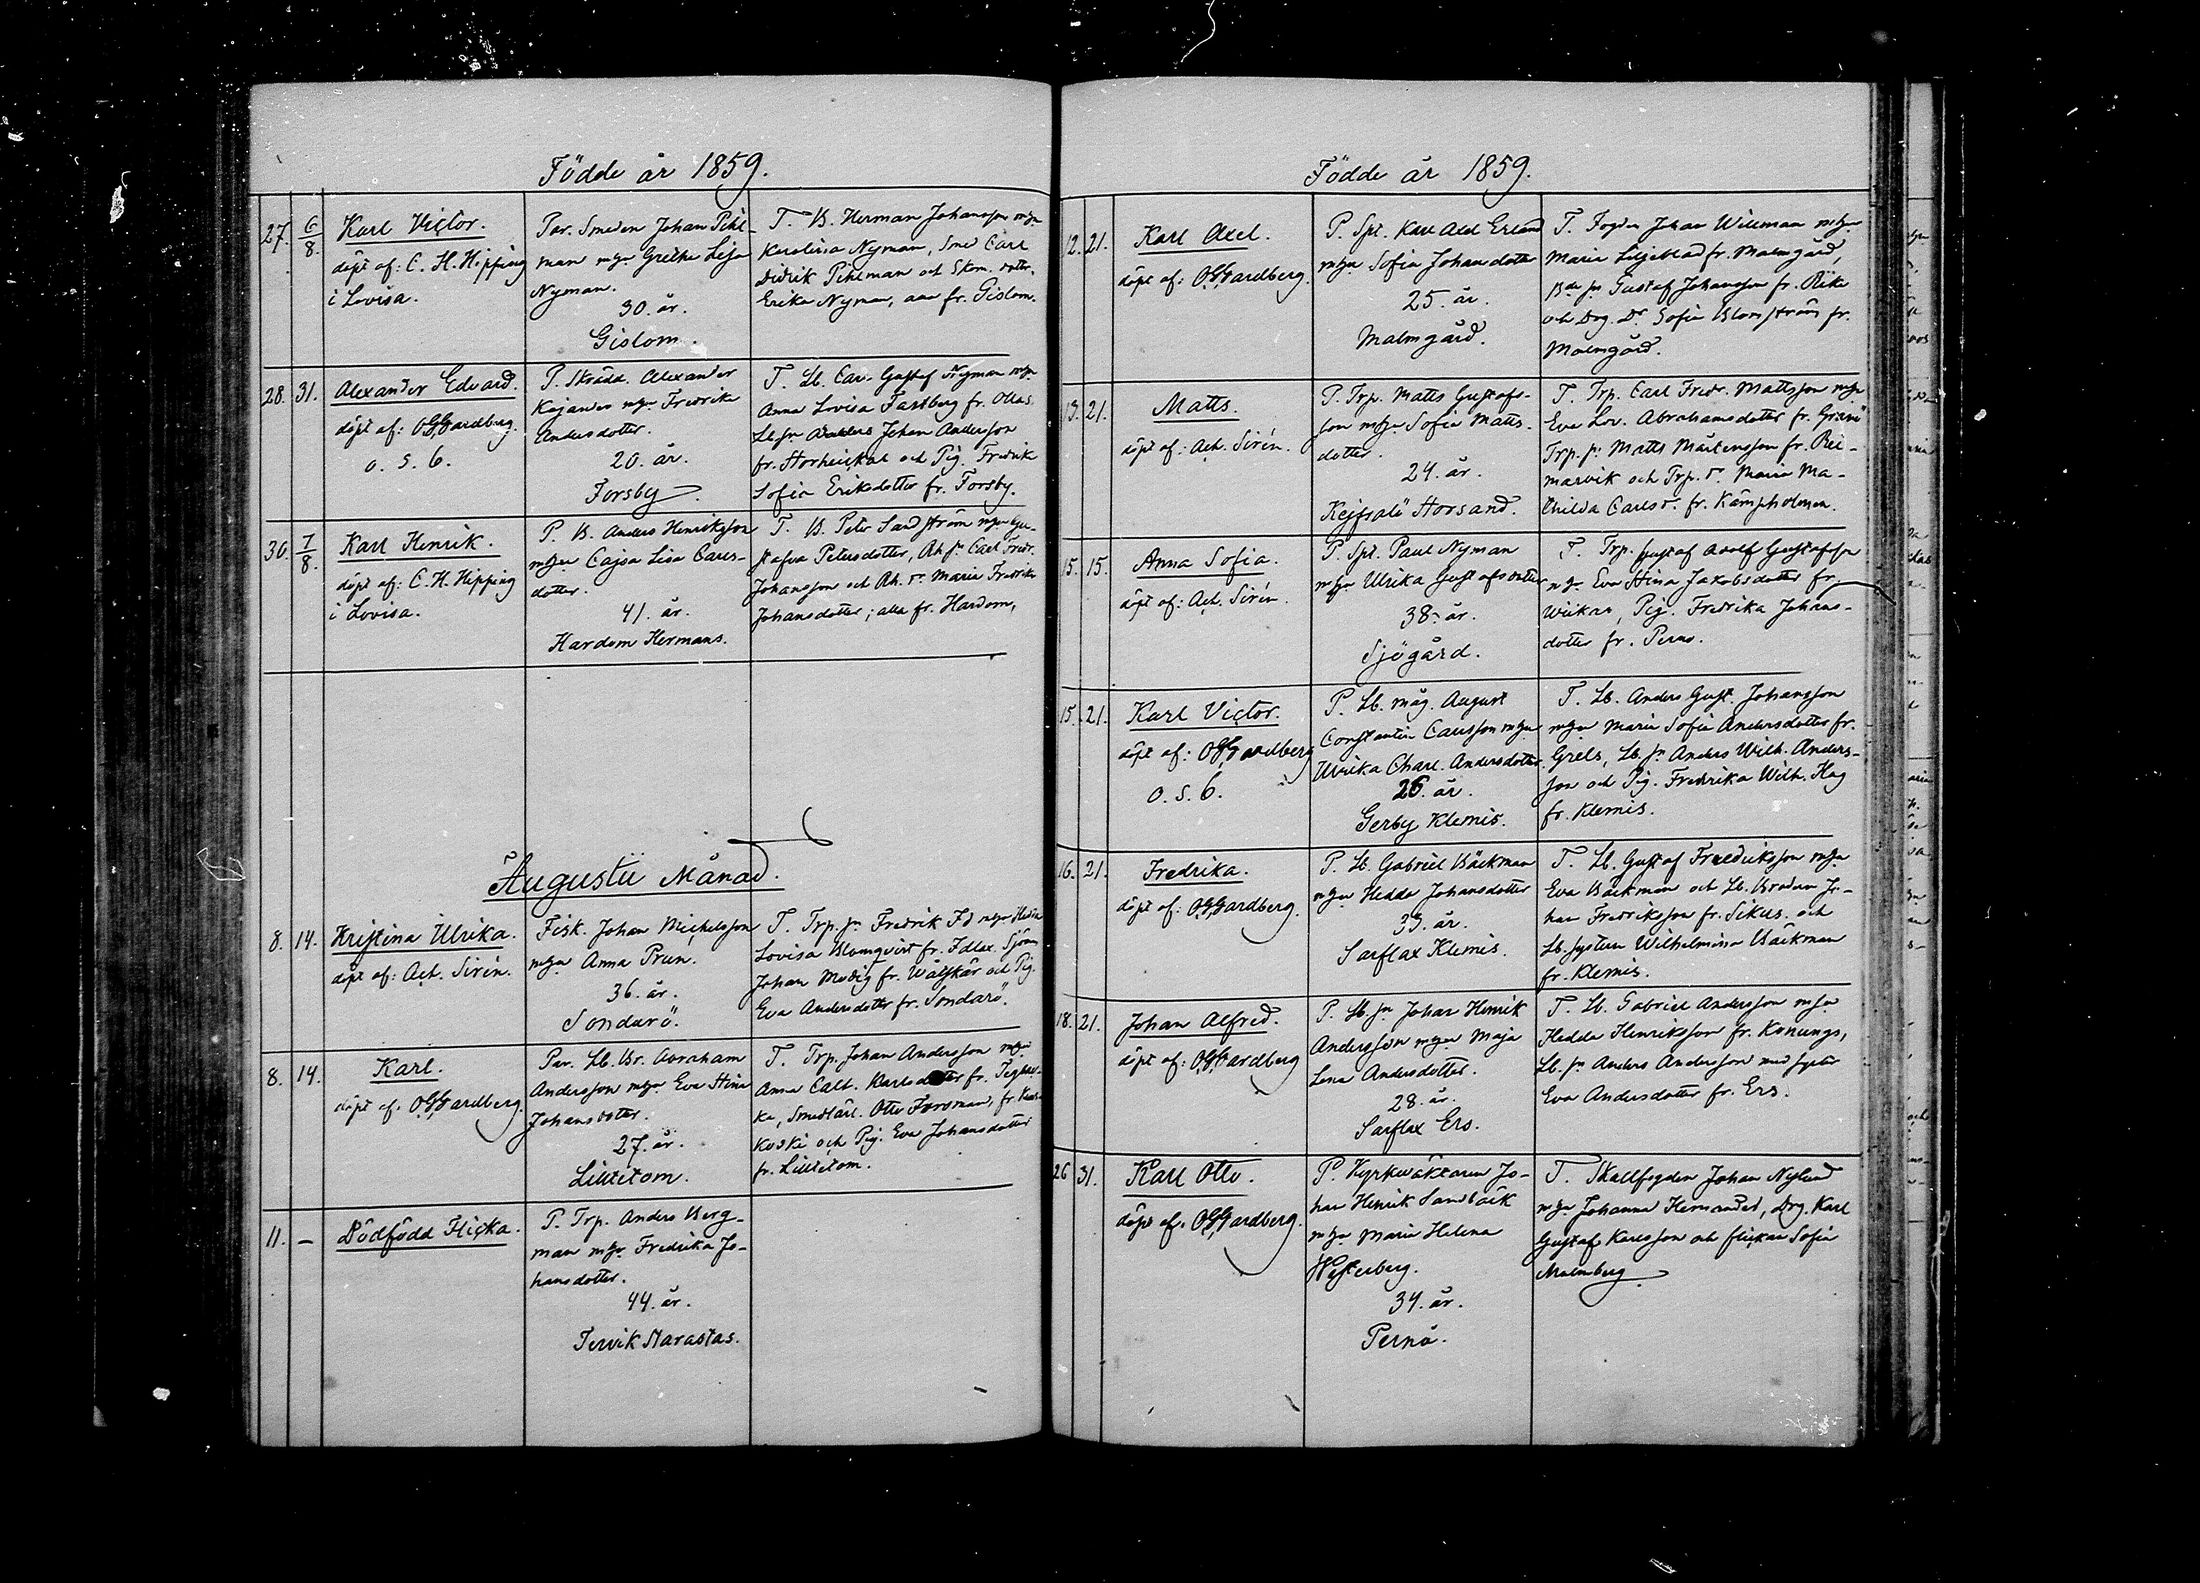 Födde år 1859.
27. 6/8. Karl Victor.
döpt af: C. H. Hipping
i Lovisa.
Par. Smeden Johan Pihl-
man m hu Gretha Lisa
Nyman.
30. år.
Gislom.
T. B. Herman Johansson m hu
Karolina Nyman, Smed Carl
Didrik Pihlman och Skom. dotter
Erika Nyman, alla fr. Gislom.
28. 31. Alexander Edvard.
döpt af: O G Gardberg.
o. s. b.
P. Skrädd. Alexander
Kajander m hu Fredrika
Andersdotter.
20. år.
Forsby.
T. Lb. Carl Gustaf Nyman m hu
Anna Lovisa Fastberg fr. Ollas.
Lb sn Johan Andersson
fr. Storheickat och Pig. Fredrik
Sofia Eriksdotter fr. Forsby.
30. 7/8. Karl Henrik.
döpt af: C. H. Hipping
i Lovisa.
P. B. Anders Henriksson
m hu Cajsa Lisa Carls-
dotter.
41. år.
Hardom Hermans.
T. B. Peter Sandström m hu Gu-
stafva Petersdotter, Rh sn Carl Fredr.
Johansson och Rh. dr Maria Fredrika
Johansdotter; alla fr. Hardom,
Augustii Månad.
8. 14. Kristina Ulrika.
döpt af: Ad. Sirén.
Fisk. Johan Michelsson
m hu Anna Prun.
36. år.
Sondarö.
T. Trp. sn Fredrik Id m hu Hedda
Lovisa Blomqvist fr. Idlax. Sjöm
Johan Modig fr. Wålskär och Pig.
Eva Andersdotter fr. Sondarö.
8. 14. Karl.
döpt af. O G Gardberg.
Par. Lb. Br. Abraham
Andersson m hu Eva Stina
Johansdotter.
27. år.
Lilletom.
T. Trp. Johan Andersson m hu
Anna Cath. Karlsdotter fr.
ka, Smedlärl. Otto Forsman, fr.
koski och Pig. Eva Johansdotter
fr. Lilletom.
11. – Dödfödd Flicka.
P. Trp. Anders Berg-
man m hu Fredrika Jo-
hansdotter.
44. år.
Tervik Starastas.
Födde år 1859.
12. 21. Karl Axel.
döpt af: O G Gardberg.
P. Spt. Karl Axel Erland
m hu Sofia Johansdotter
25. år.
Malmgård.
T. Fogden Johan Willman m hu
Maria Liljeblad fr. Malmgård,
Bde sn Gustaf Johansson fr. Rike
och Drg. Dr Sofia Blomström fr.
Malmgård.
13. 21. Matts.
döpt af: Ad. Sirén.
P. Trp. Matts Gustafs-
son m hu Sofia Matts-
dotter.
24. år.
Kejfsalö Horsand.
T. Trp. Carl Fredr. Mattsson m hu
Eva Lov. Abrahamsdotter fr.
Trp. sn Matts Mårtensson fr. Rei-
marvik och Trp. dr Maria Ma-
thilda Carlsd. fr. Kämpholmen.
15. 15. Anna Sofia.
döpt af: Ad. Sirén.
P. Spt. Paul Nyman
m hu Ulrika Gustafsdotter
38. år.
Sjögård.
T. Trp. Gustaf Adolf Gustafsson
m hu Eva Stina Jakobsdotter fr.
Wiikan, Pig. Fredrika Johans-
dotter fr. Perno.
15. 21. Karl Victor.
döpt af: O G Gardberg
o. s. b.
P. Lb. måg. August
Constantin Carlsson m hu
Ulrika Charl. Andersdotter
26. år.
Gerby Klemis.
T. Lb. Anders Gust. Johansson
m hu Maria Sofia Andersdotter fr.
Grels, Lb. sn Anders Wilh. Anders-
son och Pig. Fredrika Wilh. Hag
fr. Klemis.
16. 21. Fredrika.
döpt af: O G Gardberg.
P. Lb. Gabriel Bäckman
m hu Hedda Johansdotter
33. år.
Sarflax Klemis.
T. Lb. Gustaf Fredriksson m hu
Eva Bäckman och Lb. Brodern Jo-
han Fredriksson fr. Sikus. och
Lb. systern Wilhelmina Bäckman
fr. Klemis.
18. 21. Johan Alfred.
döpt af: O G Gardberg
P. Lb. sn Johan Henrik
Andersson m hu Maja
Lena Andersdotter.
28. år.
Sarflax Ers.
T. Lb. Gabriel Andersson m hu
Hedda Henriksson fr. Konungs,
Lb. sn Anders Andersson med syster
Eva Andersdotter fr. Ers.
26 31. Karl Otto.
döpt af. O G Gardberg.
P. Kyrkväktaren Jo-
han Henrik Sandbäck
m hu Maria Helena
Westerberg.
34. år.
Pernå.
T. Skallfogden Johan Nylund
m hu Johanna Hernander, Drg. Karl
Gustaf Karlsson och flickan Sofia
Malmberg.